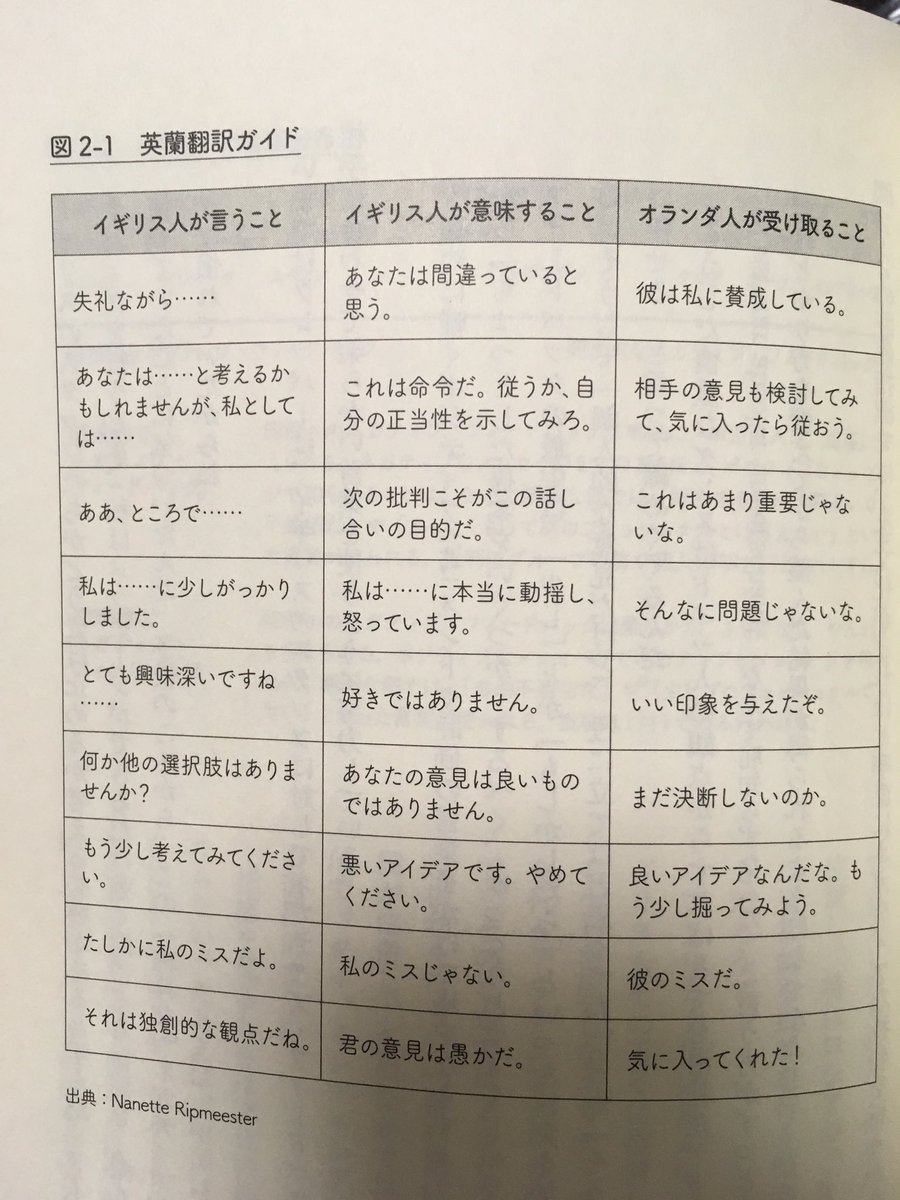 図2-1 英蘭翻訳ガイド
イギリス人が言うこと
イギリス人が意味すること
オランダ人が受け取ること
失礼ながら……
あなたは間違っていると
思う。
彼は私に賛成している。
あなたは……と考えるか
もしれませんが、私として
は……
これは命令だ。従うか、自
分の正当性を示してみろ。
相手の意見も検討してみ
て、気に入ったら従おう。
ああ、ところで……
次の批判こそがこの話し
合いの目的だ。
これはあまり重要じゃな
いな。
私は……に少しがっかり
しました。
私は……に本当に動揺し、
怒っています。
そんなに問題じゃないな。
とても興味深いですね
……
好きではありません。
いい印象を与えたぞ。
何か他の選択肢はありま
せんか？
あなたの意見は良いもの
ではありません。
まだ決断しないのか。
もう少し考えてみてくださ
い。
悪いアイデアです。やめて
ください。
良いアイデアなんだな。も
う少し掘ってみよう。
たしかに私のミスだよ。
私のミスじゃない。
彼のミスだ。
それは独創的な観点だね。
君の意見は愚かだ。
気に入ってくれた！
出典：Nanette Ripmeester